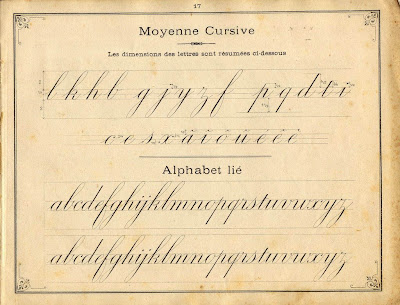 17
Moyenne Cursive
Les dimensions des lettres sont résumées ci-dessous
l k h b g j y z f p q d t i
c e s x
Alphabet lié
abcdefghijklmnopqrstuvwxyz
abcdefghijklmnopqrstuvwxyz